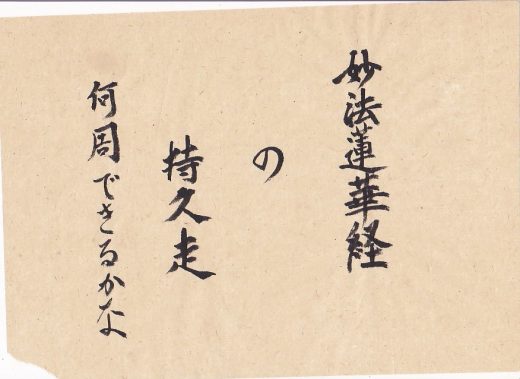 妙法蓮華経
の
持久走
何周できるかな